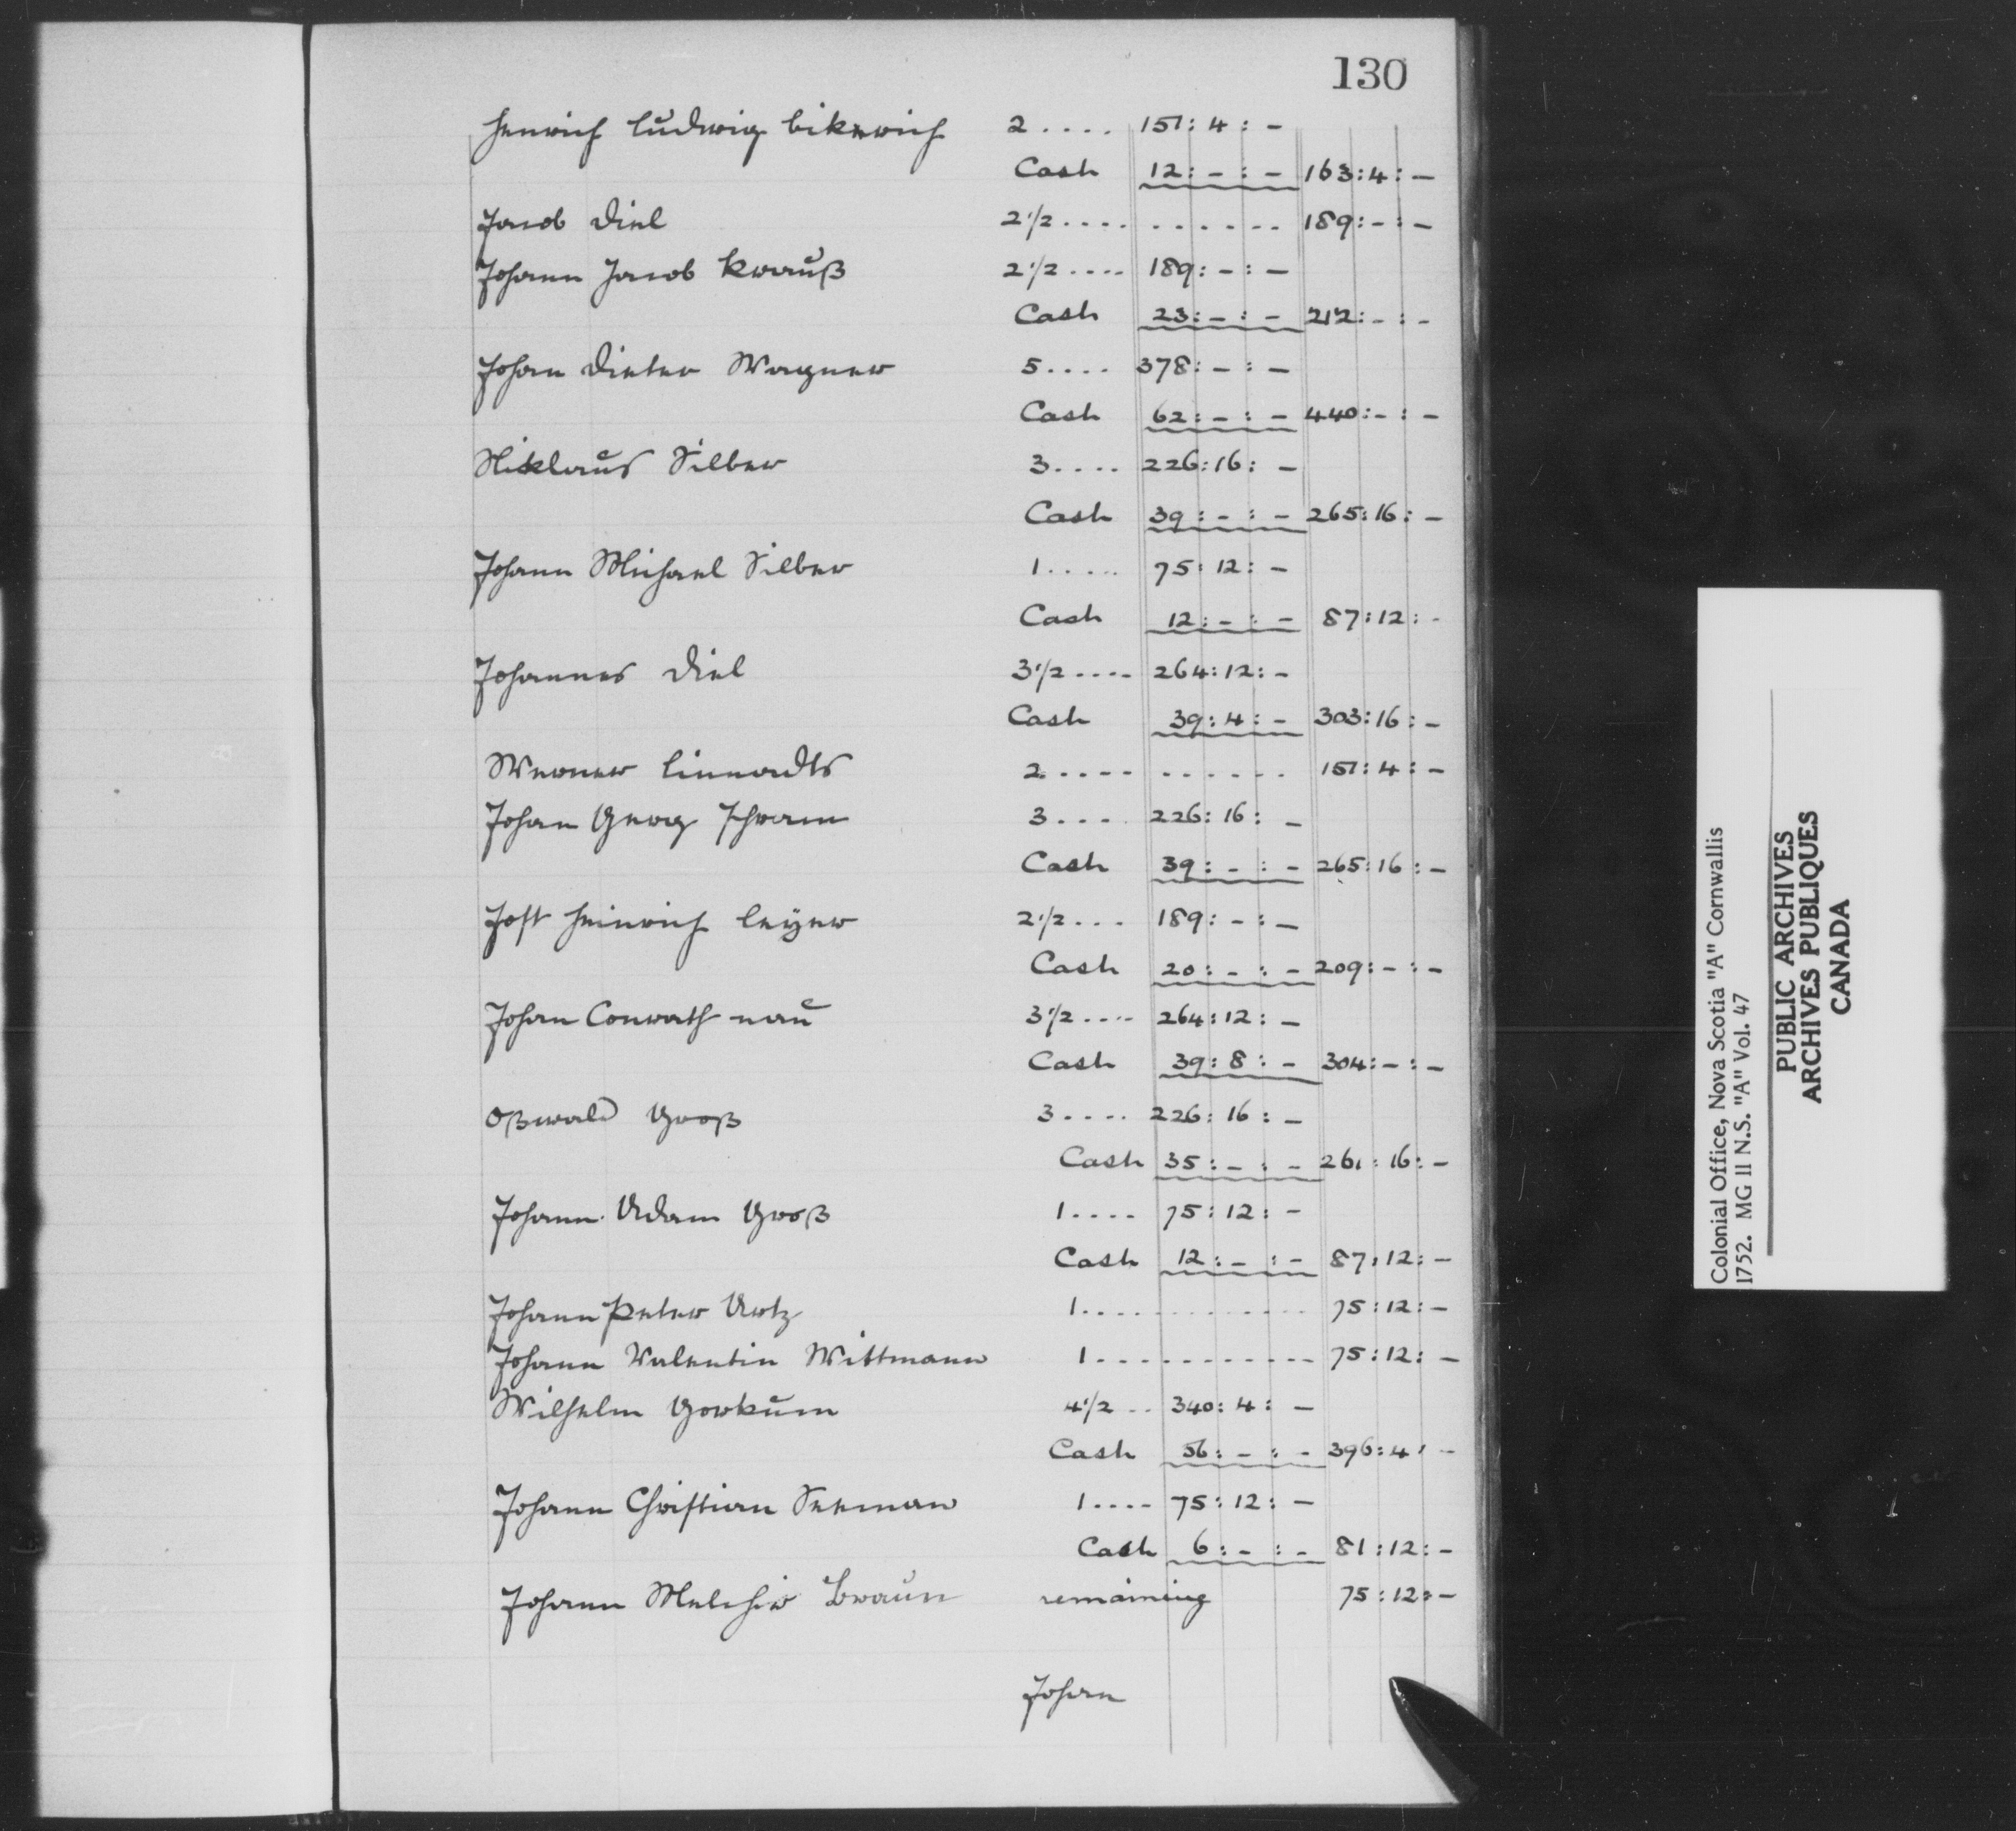 130
Henrich Ludwig bikwrich 2 .... 151 : 4 : -
Cash 12 : - : - 163 : 4 : -
Jacob Diel 2 1/2 .... ...... 189 : - : -
Johann Jacob Krauß 2 1/2 .... 189 : - : -
Cash 23 : - : - 212 : - : -
Johan Dieter Wagner 5 .... 378 : - : -
Cash 62 : - : - 440 : - : -
Niklaus Silber 3 .... 226 : 16 : -
Cash 39 : - : - 265 : 16 : -
Johann Michael Silber 1 ..... 75 : 12 : -
Cash 12 : - : - 87 : 12 : -
Johannes Diel 3 1/2 .... 264 : 12 : -
Cash 39 : 4 : - 303 : 16 : -
Werner 2 .... ...... 151 : 4 : -
Johan Georg Schram 3 .... 226 : 16 : -
Cash 39 : - : - 265 : 16 : -
Jost Heinrich Leÿer 2 1/2 ... 189 : - : -
Cash 20 : - : - 209 : - : -
Johan Conrath nau 3 1/2 .... 264 : 12 : -
Cash 39 : 8 : - 304 : - : -
Oßwald Groß 3 .... 226 : 16 : -
Cash 35 : - : - 261 : 16 : -
Johann Adam Groß 1 .... 75 : 12 : -
Cash 12 : - : - 87 : 12 : -
Johann Peter Artz 1 ............ 75 : 12 : -
Johann Valentin Wittmann 1 ............ 75 : 12 : -
Wilhelm Gorkum 4 1/2 .. 340 : 4 : -
Cash 56 : - : - 396 : 4 : -
Johann Christian Seeman 1 .... 75 : 12 : -
Cash 6 : - : - 81 : 12 : -
Johann Melchior Braun remaining 75 : 12 : -
Johan
Colonial Office, Nova Scotia "A" Cornwallis
1752. MG 11 N.S. "A" Vol. 47
PUBLIC ARCHIVES
ARCHIVES PUBLIQUES
CANADA